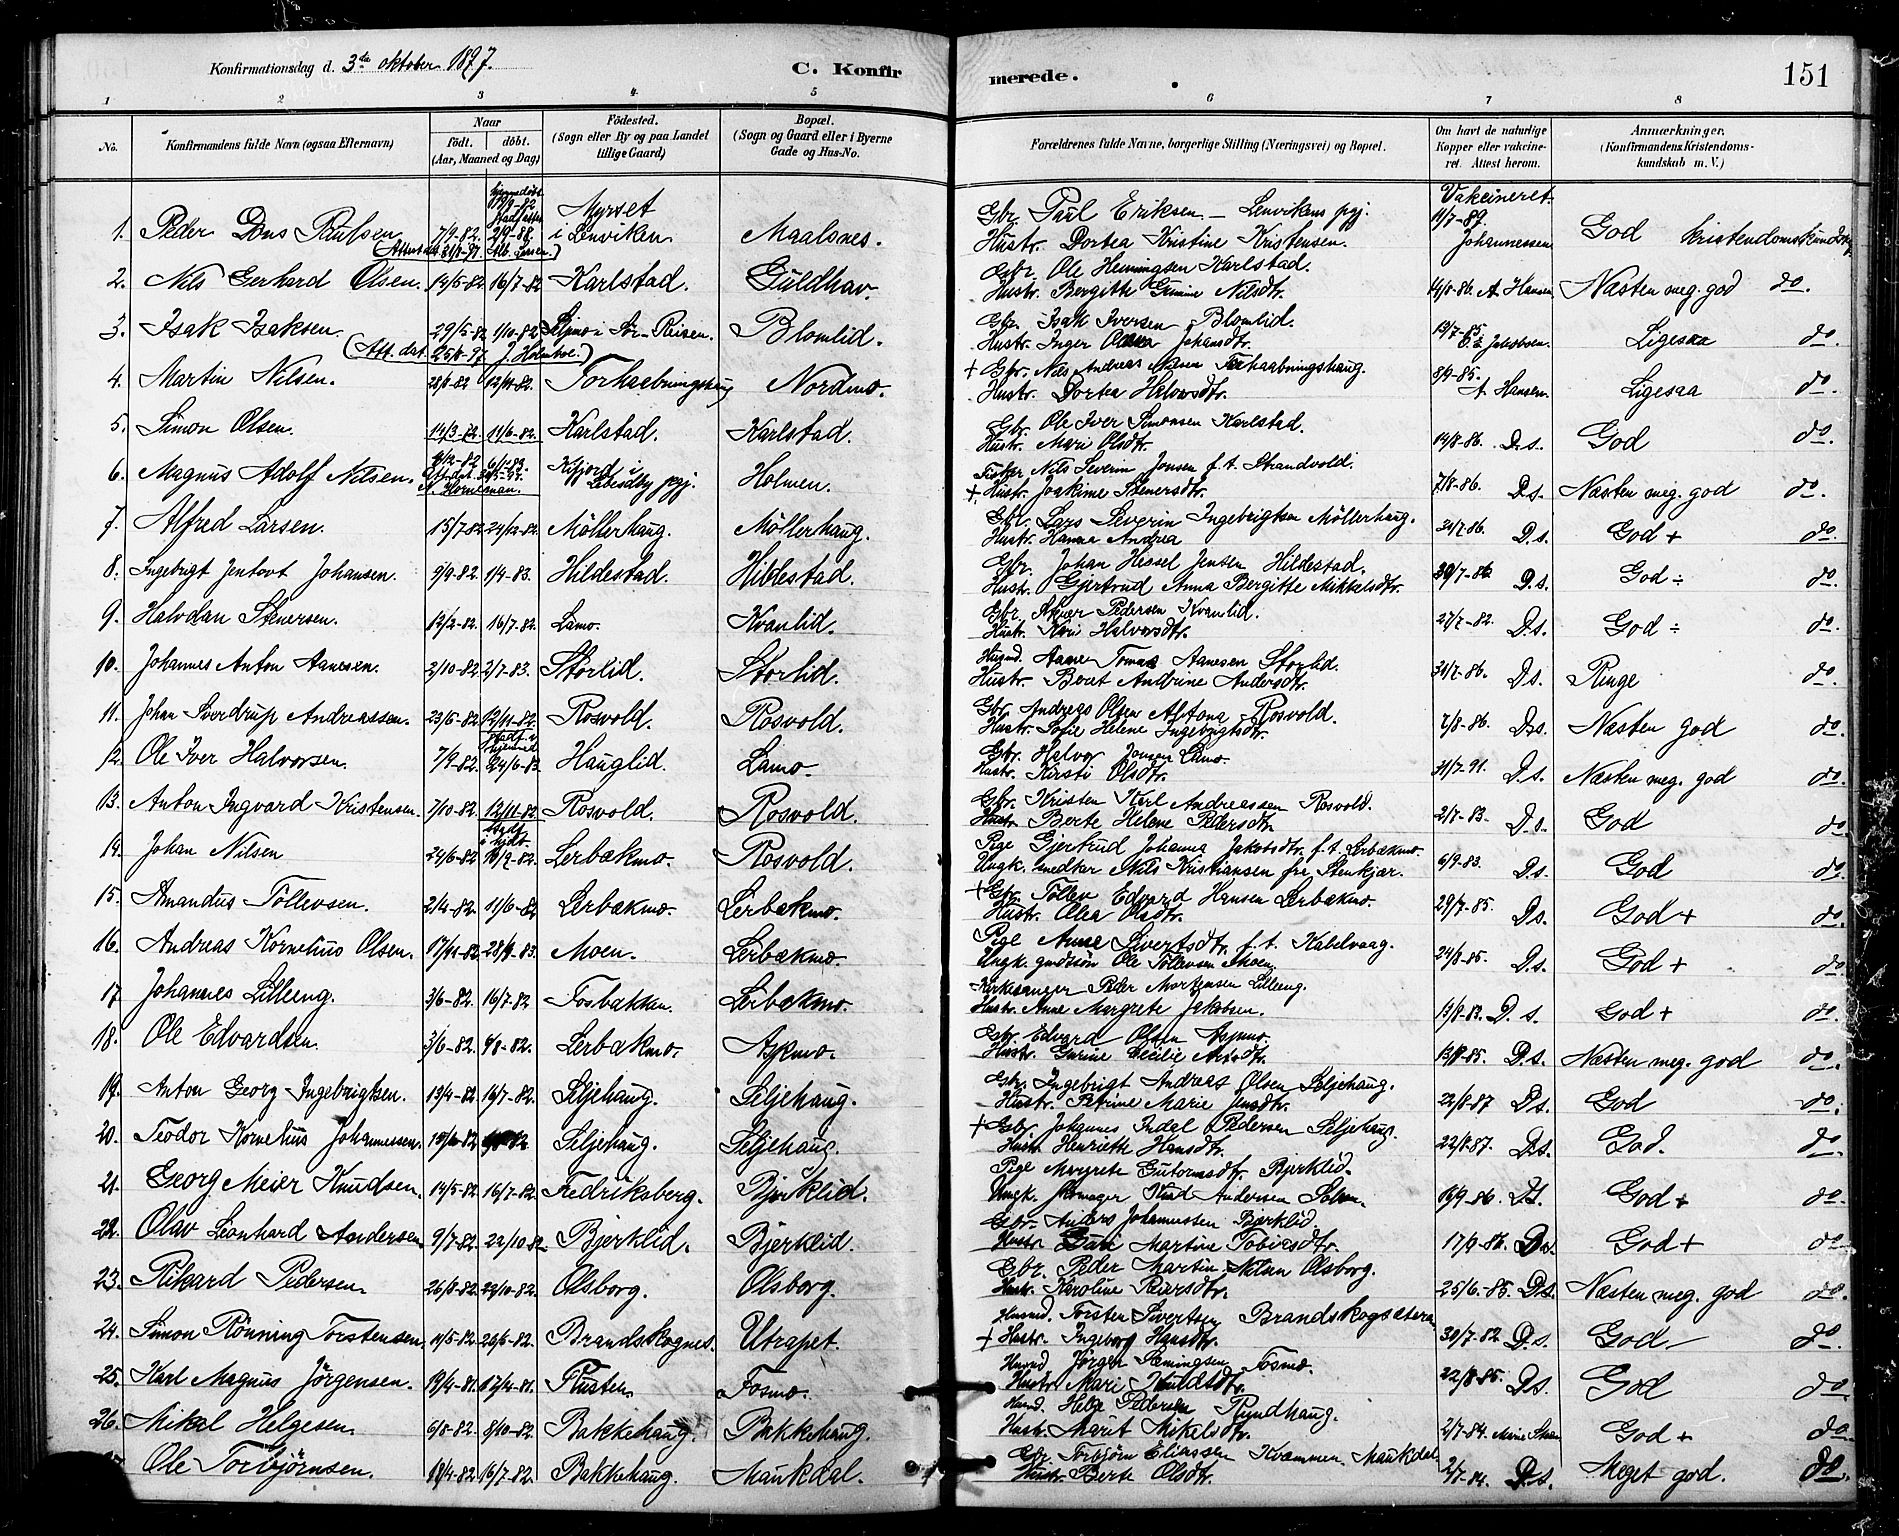 Konfirmationsdag d. 3die oktober 1897.
C. Konfirmerede.
151
1 2 3 4 5 6 7 8
No.
Konfirmandens fulde Navn (ogsaa Efternavn)
Naar
födt. döbt.
(Aar, Maaned og Dag)
Födested.
(Sogn eller By og paa Landet
tillige Gaard)
Bopæl.
(Sogn og Gaard eller i Byerne
Gade og Hus-No.
Forældrenes fulde Navne, borgerlige Stilling (Næringsvei) og Bopæl.
Om havt de naturlige
Kopper eller vakcine-
ret. Attest herom.
Anmærkninger.
(Konfirmandens Kristendoms-
kundskab m. V.)
Vakcineret
1. Peder Paulsen 7/9-82. Myrset i Lenviken Maalsnes. Gbr. Paul Eriksen - Lenvikens pgj. Hustr. Dortea Kristine Kristensen. 11/7-89. Johannessen God Kristendomskundskab
2. Nils Gerhard Olsen. 14/5-82 16/7-82 Karlstad. Guldhav. Gbr. Ole Henningsen Karlstad. Hustr. Bergitte Nilsdtr. 14/8-86. A Hansen Næsten meg. god do.
3. Isak Isaksen. 29/5-82 1/10-82 Blomlid. Gbr. Isak Iversen Blomlid. Hustr. Inger Johansdtr. 19/7-85. Jakobsen. Ligesaa do.
4. Martin Nilsen. 12/11-82. Forhaabningshaug Nordmo. + Gbr. Nils Andreas Forhaabningshaug. Hustr. Dortea Halvorsdtr. 8/9-85. A Hansen. Ligesaa do.
5. Simon Olsen. 14/3-82. 11/6-82. Karlstad. Karlstad. Gbr. Ole Iver Simonsen Karlstad. Hustr. Mari Olsdtr. 14/8-86. D.s. God do.
6. Magnus Adolf Nilsen. Lebesby pgj. Holmen. Fisker Nils Severin Jensen f.t. Strandvold. + Hustr. Joakime Stenersdtr. 7/8-86. D.s. Næsten meg. god do.
7. Alfred Larsen. 15/7-82 24/12-82. Möllerhaug. Möllerhaug. Gbr. Lars Severin Ingebrigtsen Möllerhaug. Hustr. Hanna Andrea 31/7-86. D.s. God + do.
8. Ingebrigt Jentoft Johansen. 9/9-82 1/4-83. Hildestad. Hildestad. Gbr. Johan Hessel Jensen Hildestad. Hustr. Gjertrud Anna Bergitte Mikkelsdtr. 30/7-86. D.s. God ÷ do.
9. Halvdan Stenersen. 12/2-82. 16/7-82. Lamo. Kvanlid. Gbr. Stener Pedersen Kvanlid. Hustr. Kari Halvorsdtr. 27/7-82. D.s. God ÷ do.
10. Johannes Anton Aanesen. 2/10-82. 2/7-83. Storlid. Storlid. Husmd. Aane Tomas Aanesen Storlid. Hustr. Berit Andrine Andersdtr. 31/7-86. D.s. Ringe do.
11. Johan Sverdrup Andreassen. 23/6-82 12/11-82. Rosvold. Rosvold. Gbr. Andreas Olsen Altona Rosvold. Hustr. Sofie Helene Ingebrigtsdtr. 7/8-86. D.s. Næsten god do.
12. Ole Iver Halvorsen. 7/9-82. 24/6-83. Hauglid. Lamo. Gbr. Halvor Jonsen Lamo. Hustr. Kirsti Olsdtr. 31/7-91. D.s. Næsten meg. god do.
13. Anton Ingvard Kristensen. 7/10-82. 12/11-82. Rosvold. Rosvold. Gbr. Kristen Karl Andreassen Rosvold. Hustr. Berte Helene Pedersdtr. 2/7-83. D.s. God do.
14. Johan Nilsen 24/6-82 Lerbækmo. Rosvold. Pige Gjertrud Johanna Jakobsdtr. f.t. Lerbækmo. Ungk. snedker Nils Kristiansen fra Stenkjær. 6/9-83. D.s. God do.
15. Amandus Tollevsen. 2/4-82. 11/6-82 Lerbækmo. Lerbækmo. + Gbr. Tollev Edvard Hansen Lerbækmo. Hustr. Olea Olsdtr. 29/7-85. D.s. God + do.
16. Andreas Kornelius Olsen. 17/11-82. 28/9-83. Moen. Lerbækmo. Pige Anna Sivertsdtr. f.t. Kabelvaag. Ungk. gmdssön Ole Tollevsen Moen. 24/8-85. D.s. God + do.
17 Johannes Lilleeng. 3/6-82. 16/7-82. Fosbakken. Lerbækmo. Kirkesanger Peder Mortensen Lilleeng. Hustr. Anne Margrete Jakobsen. 13/8-83. D.s. God + do.
18. Ole Edvardsen. 3/6-82. 9/8-82. Lerbækmo. Aspmo. Gbr. Edvard Olsen Aspmo. Hustr. Gurine Cecilie 13/8-85. D.s. Næsten meg. god do.
19. Anton Georg Ingebrigtsen. 13/4-82 16/7-82. Seljehaug. Seljehaug. Gbr. Ingebrigt Andreas Olsen Seljehaug. Hustr. Petrine Marie Jensdtr. 22/8-87 D.s. God do.
20. Teodor Kornelius Johannessen. Seljehaug. Seljehaug. + Gbr. Johannes Indal Pedersen Seljehaug. Hustr. Henriette Hansdtr. 22/8-87. D.s. God. do.
21. Georg Meier Knudsen. 14/5-82. 16/7-82. Fredriksberg. Bjerklid. Pige Margrete Gutormsdtr. Bjerklid. Ungk. Knud Andersen 16/9-86. D.s. God + do.
22. Olav Leonhard Andersen. 9/7-82. 22/10-82. Bjerklid. Bjerklid. Gbr. Anders Johannesen Bjerklid. Hustr. Martine Tobiasdtr. 17/9-86. D.s. God + do.
23. Rikard Pedersen. 26/8-82. 22/10-82. Olsborg. Olsborg. Gbr. Peder Martin Nilsen Olsborg. Hustr. Karoline Peersdtr. 25/6-85. D.s. Næsten meg. god do.
24. Simon Rönning Torstensen. 11/5-82. Brandskognes. Utrapet. Husmd. Torsten Sivertsen Brandskogsætern + Hustr. Ingeborg Hansdtr. 30/7-82. D.s. God do.
25. Karl Magnus Jörgensen. 19/4-81. 17/4-81. Rusten. Fosmo. Husmd Jörgen Fosmo. Hustr. Mari 22/8-85. D.s. God do.
26. Mikal Helgesen. 6/8-82. 8/10-82. Bakkehaug. Bakkehaug. Husmd. Helge Pedersen Rundhaug. Hustr. Marit Mikelsdtr. 2/7-84. God + do.
Ole Torbjörnsen. 19/4-82 16/7-82. Bakkehaug. Maukdal. Gbr. Torbjörn Eliassen Kvammen, Maukdal. Hustr. Berte Olsdtr. 2/7-84. D.s. Meget god. do.